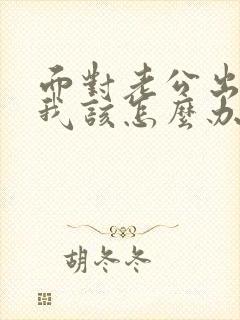 面對老公出
我該怎麼办
胡冬冬